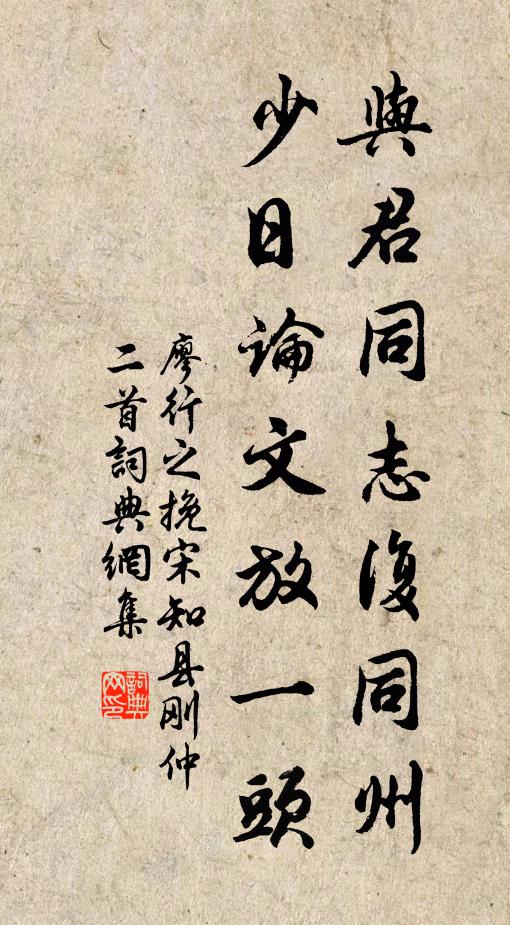 與君同志復同州
少日論文放一頭
廖行之挽宋知县刚仲
二首詞典網集
詞典網印